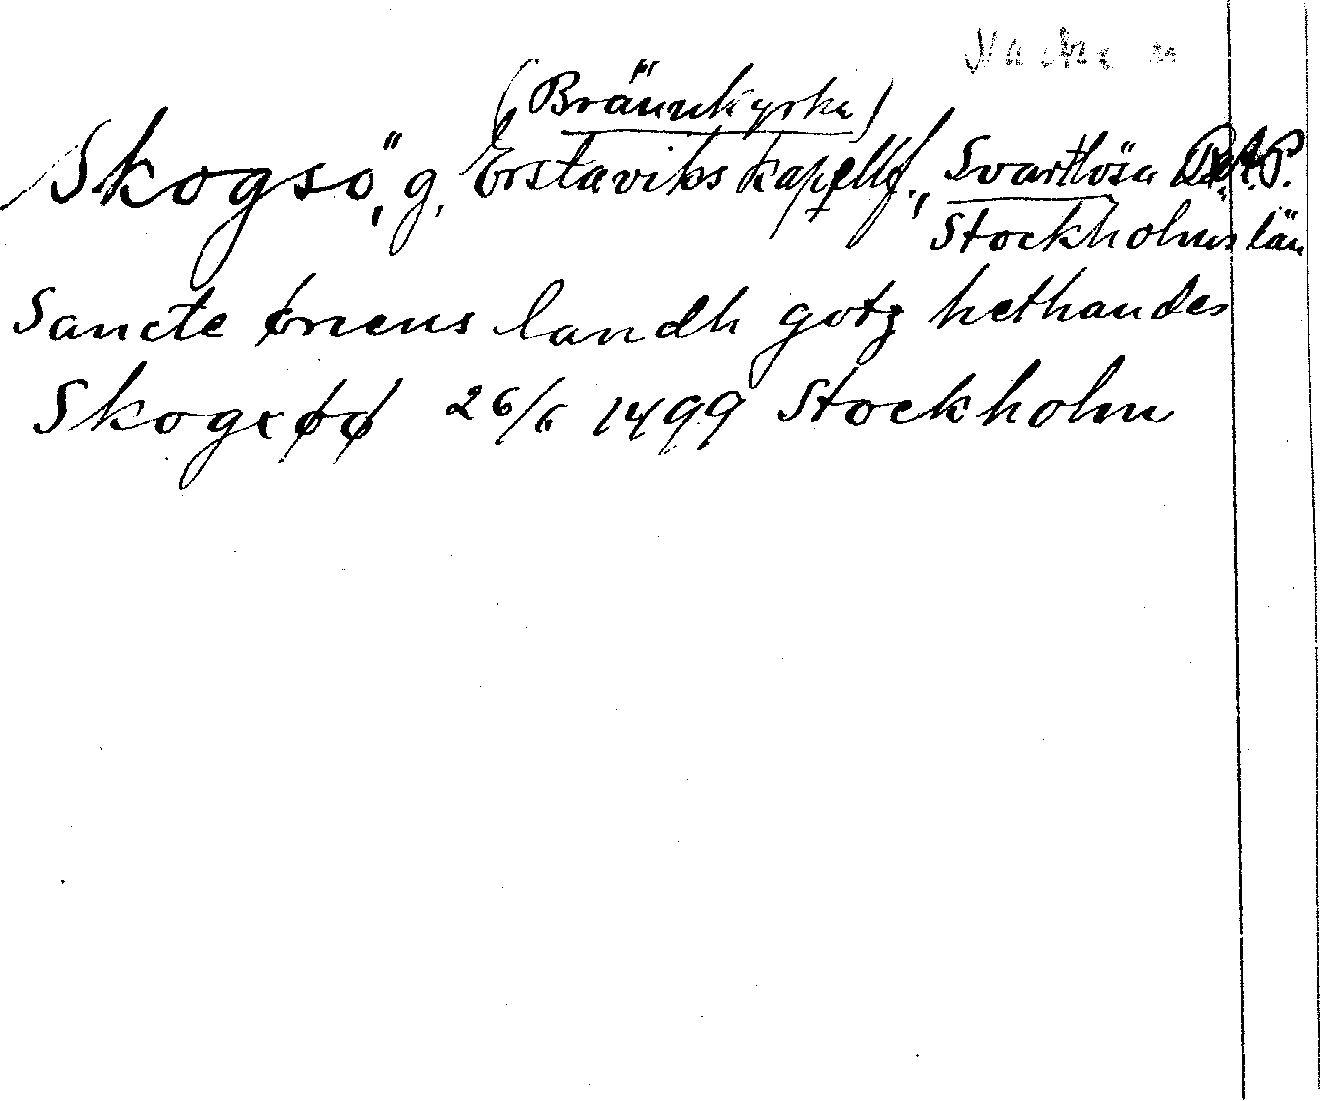 Nacka sn
(Brännkyrka)
Skogsö, g, Erstaviks kapellf., Svartlösa
Stockholms län
Sancte øriens landh gotz hethandes
Skogxøø 26/6 1499 Stockholm